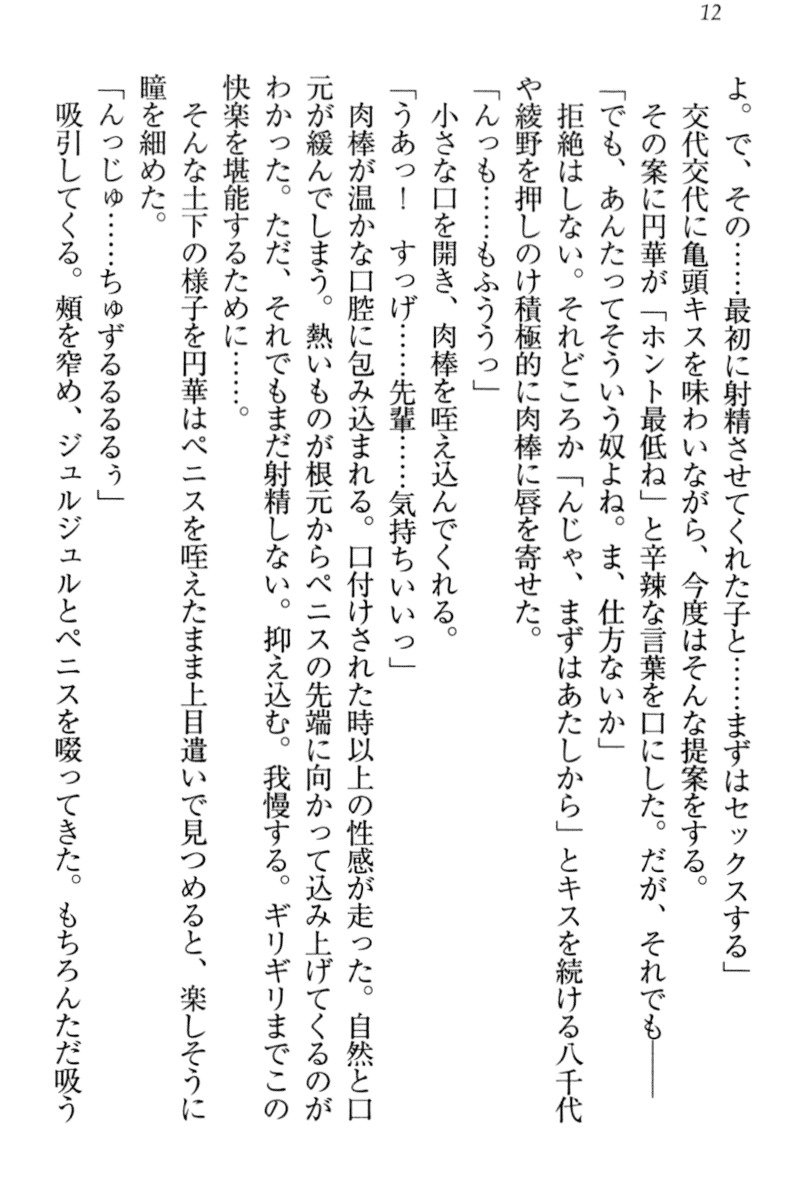 12
よ。で、その……最初に射精させてくれた子と……まずはセックスする」
交代交代に亀頭キスを味わいながら、今度はそんな提案をする。
その案に円華が「ホント最低ね」と辛辣な言葉を口にした。だが、それでも――
「でも、あんたってそういう奴よね。ま、仕方ないか」
拒絶はしない。それどころか「んじゃ、まずはあたしから」とキスを続ける八千代
や綾野を押しのけ積極的に肉棒に唇を寄せた。
「んっも……もふううっ」
小さな口を開き、肉棒を咥え込んでくれる。
「うあっ！　すっげ……先輩……気持ちいいっ」
肉棒が温かな口腔に包み込まれる。口付けされた時以上の性感が走った。自然と口
元が緩んでしまう。熱いものが根元からペニスの先端に向かって込み上げてくるのが
わかった。ただ、それでもまだ射精しない。抑え込む。我慢する。ギリギリまでこの
快楽を堪能するために……。
そんな土下の様子を円華はペニスを咥えたまま上目遣いで見つめると、楽しそうに
瞳を細めた。
「んっじゅ……ちゅずるるるるぅ」
吸引してくる。頬を窄め、ジュルジュルとペニスを啜ってきた。もちろんただ吸う